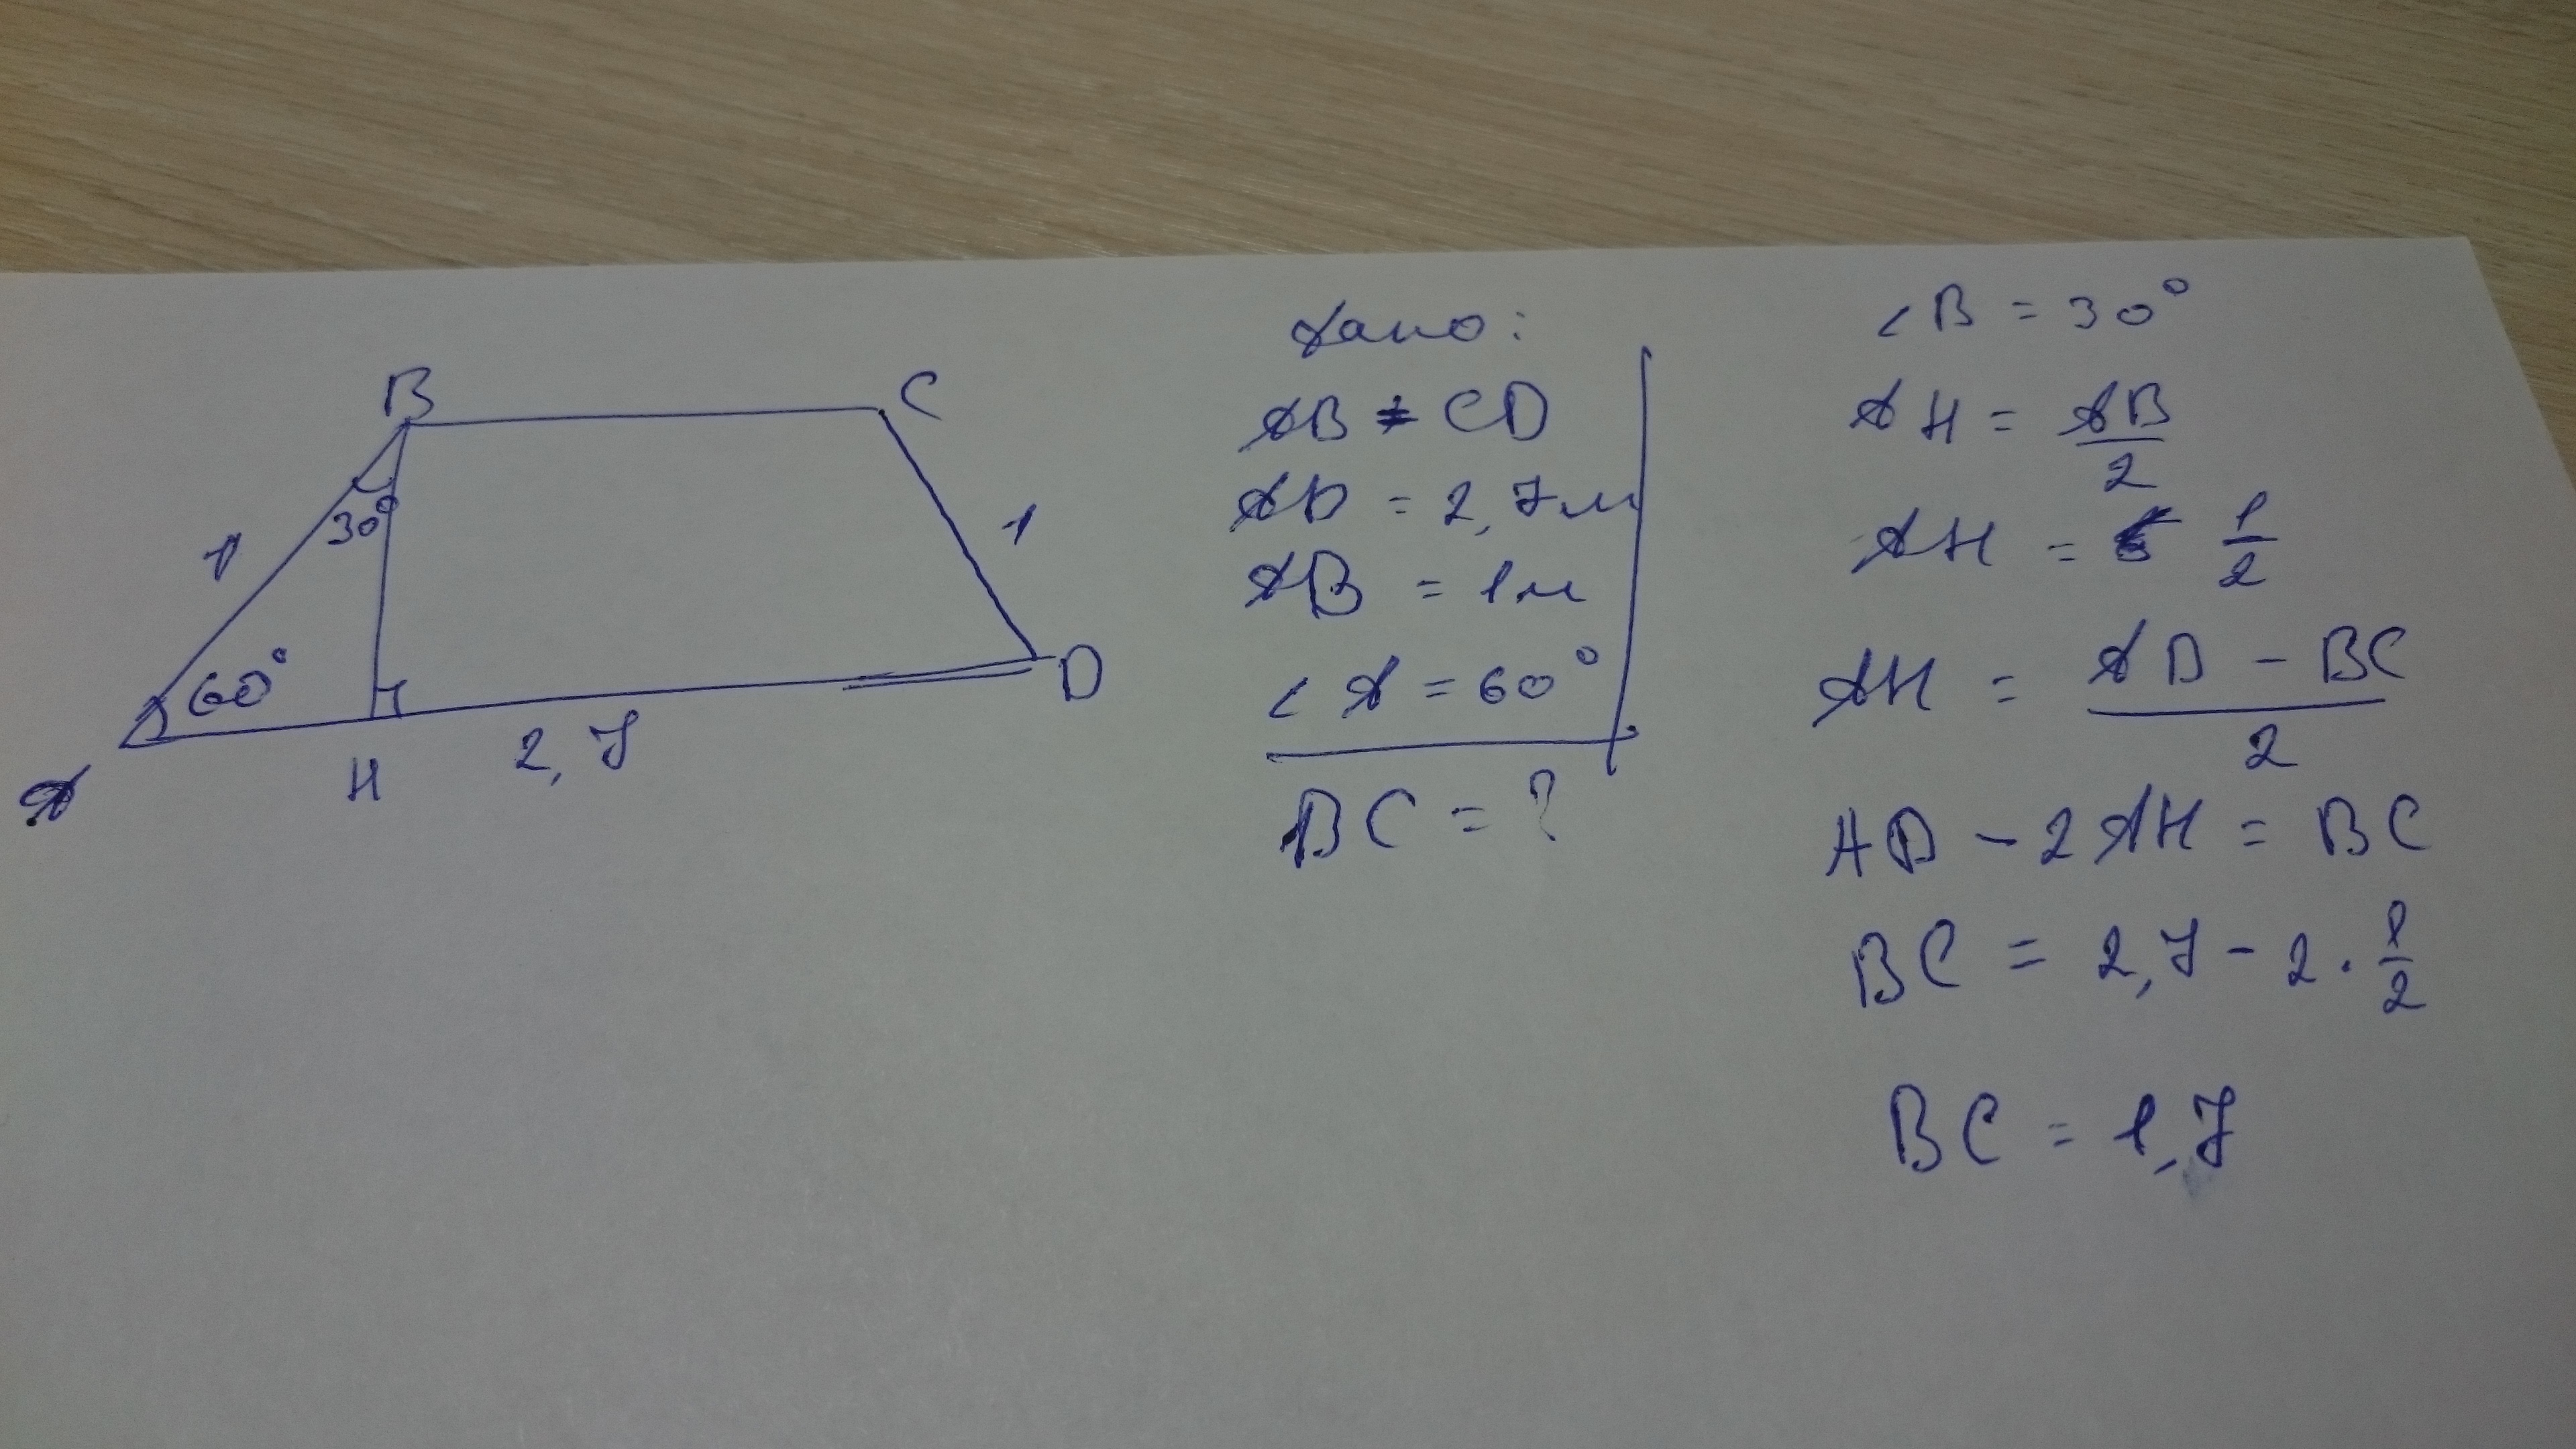 B
C
30°
1
1
60°
D
A
H
2,7
Дано:
AB = CD
AD = 2,7м
AB = 1м
∠ A = 60°
BC = ?
∠ B = 30°
AH = AB/2
AH = 1/2
AH = AD - BC/2
AD - 2AH = BC
BC = 2,7 - 2 · 1/2
BC = 1,7